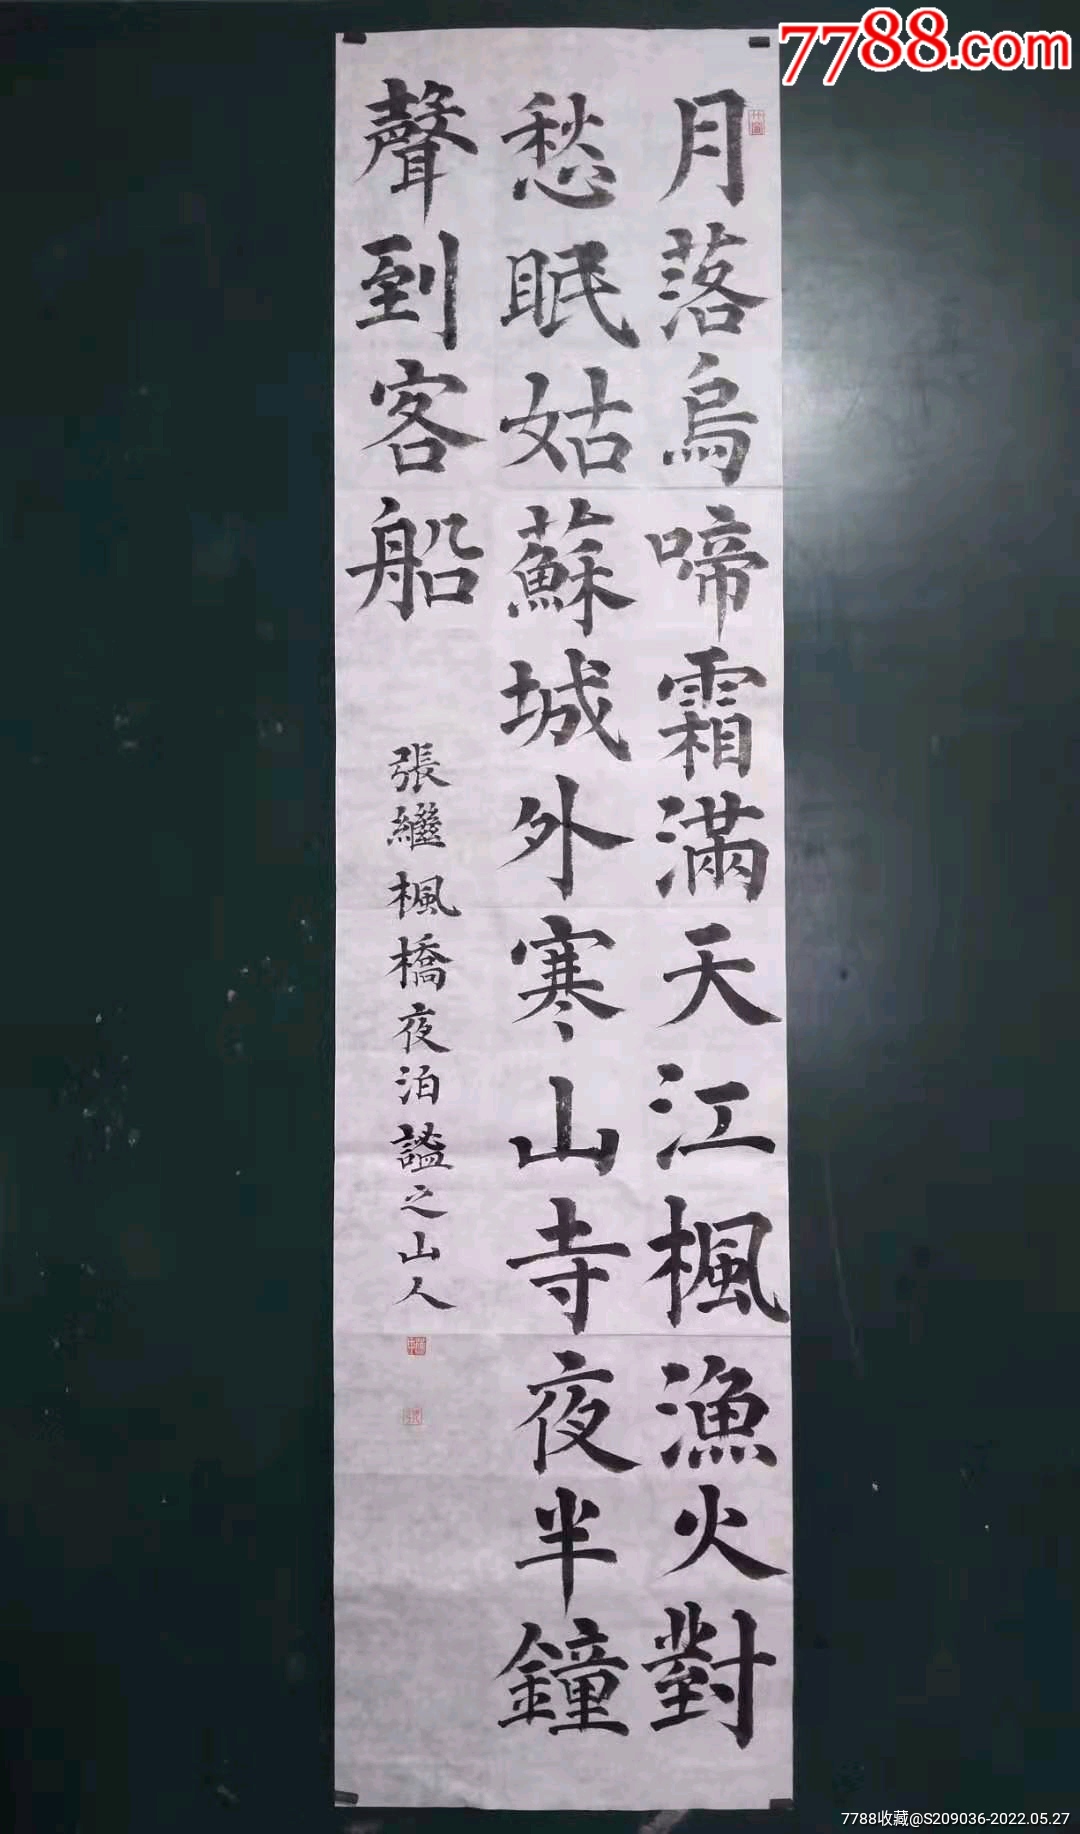 7788.com
月落烏啼霜滿天江楓漁火對
愁眠姑蘇城外寒山寺夜半鐘
聲到客船
張繼楓橋夜泊謐之山人
7788收藏@S209036-2022.05.27